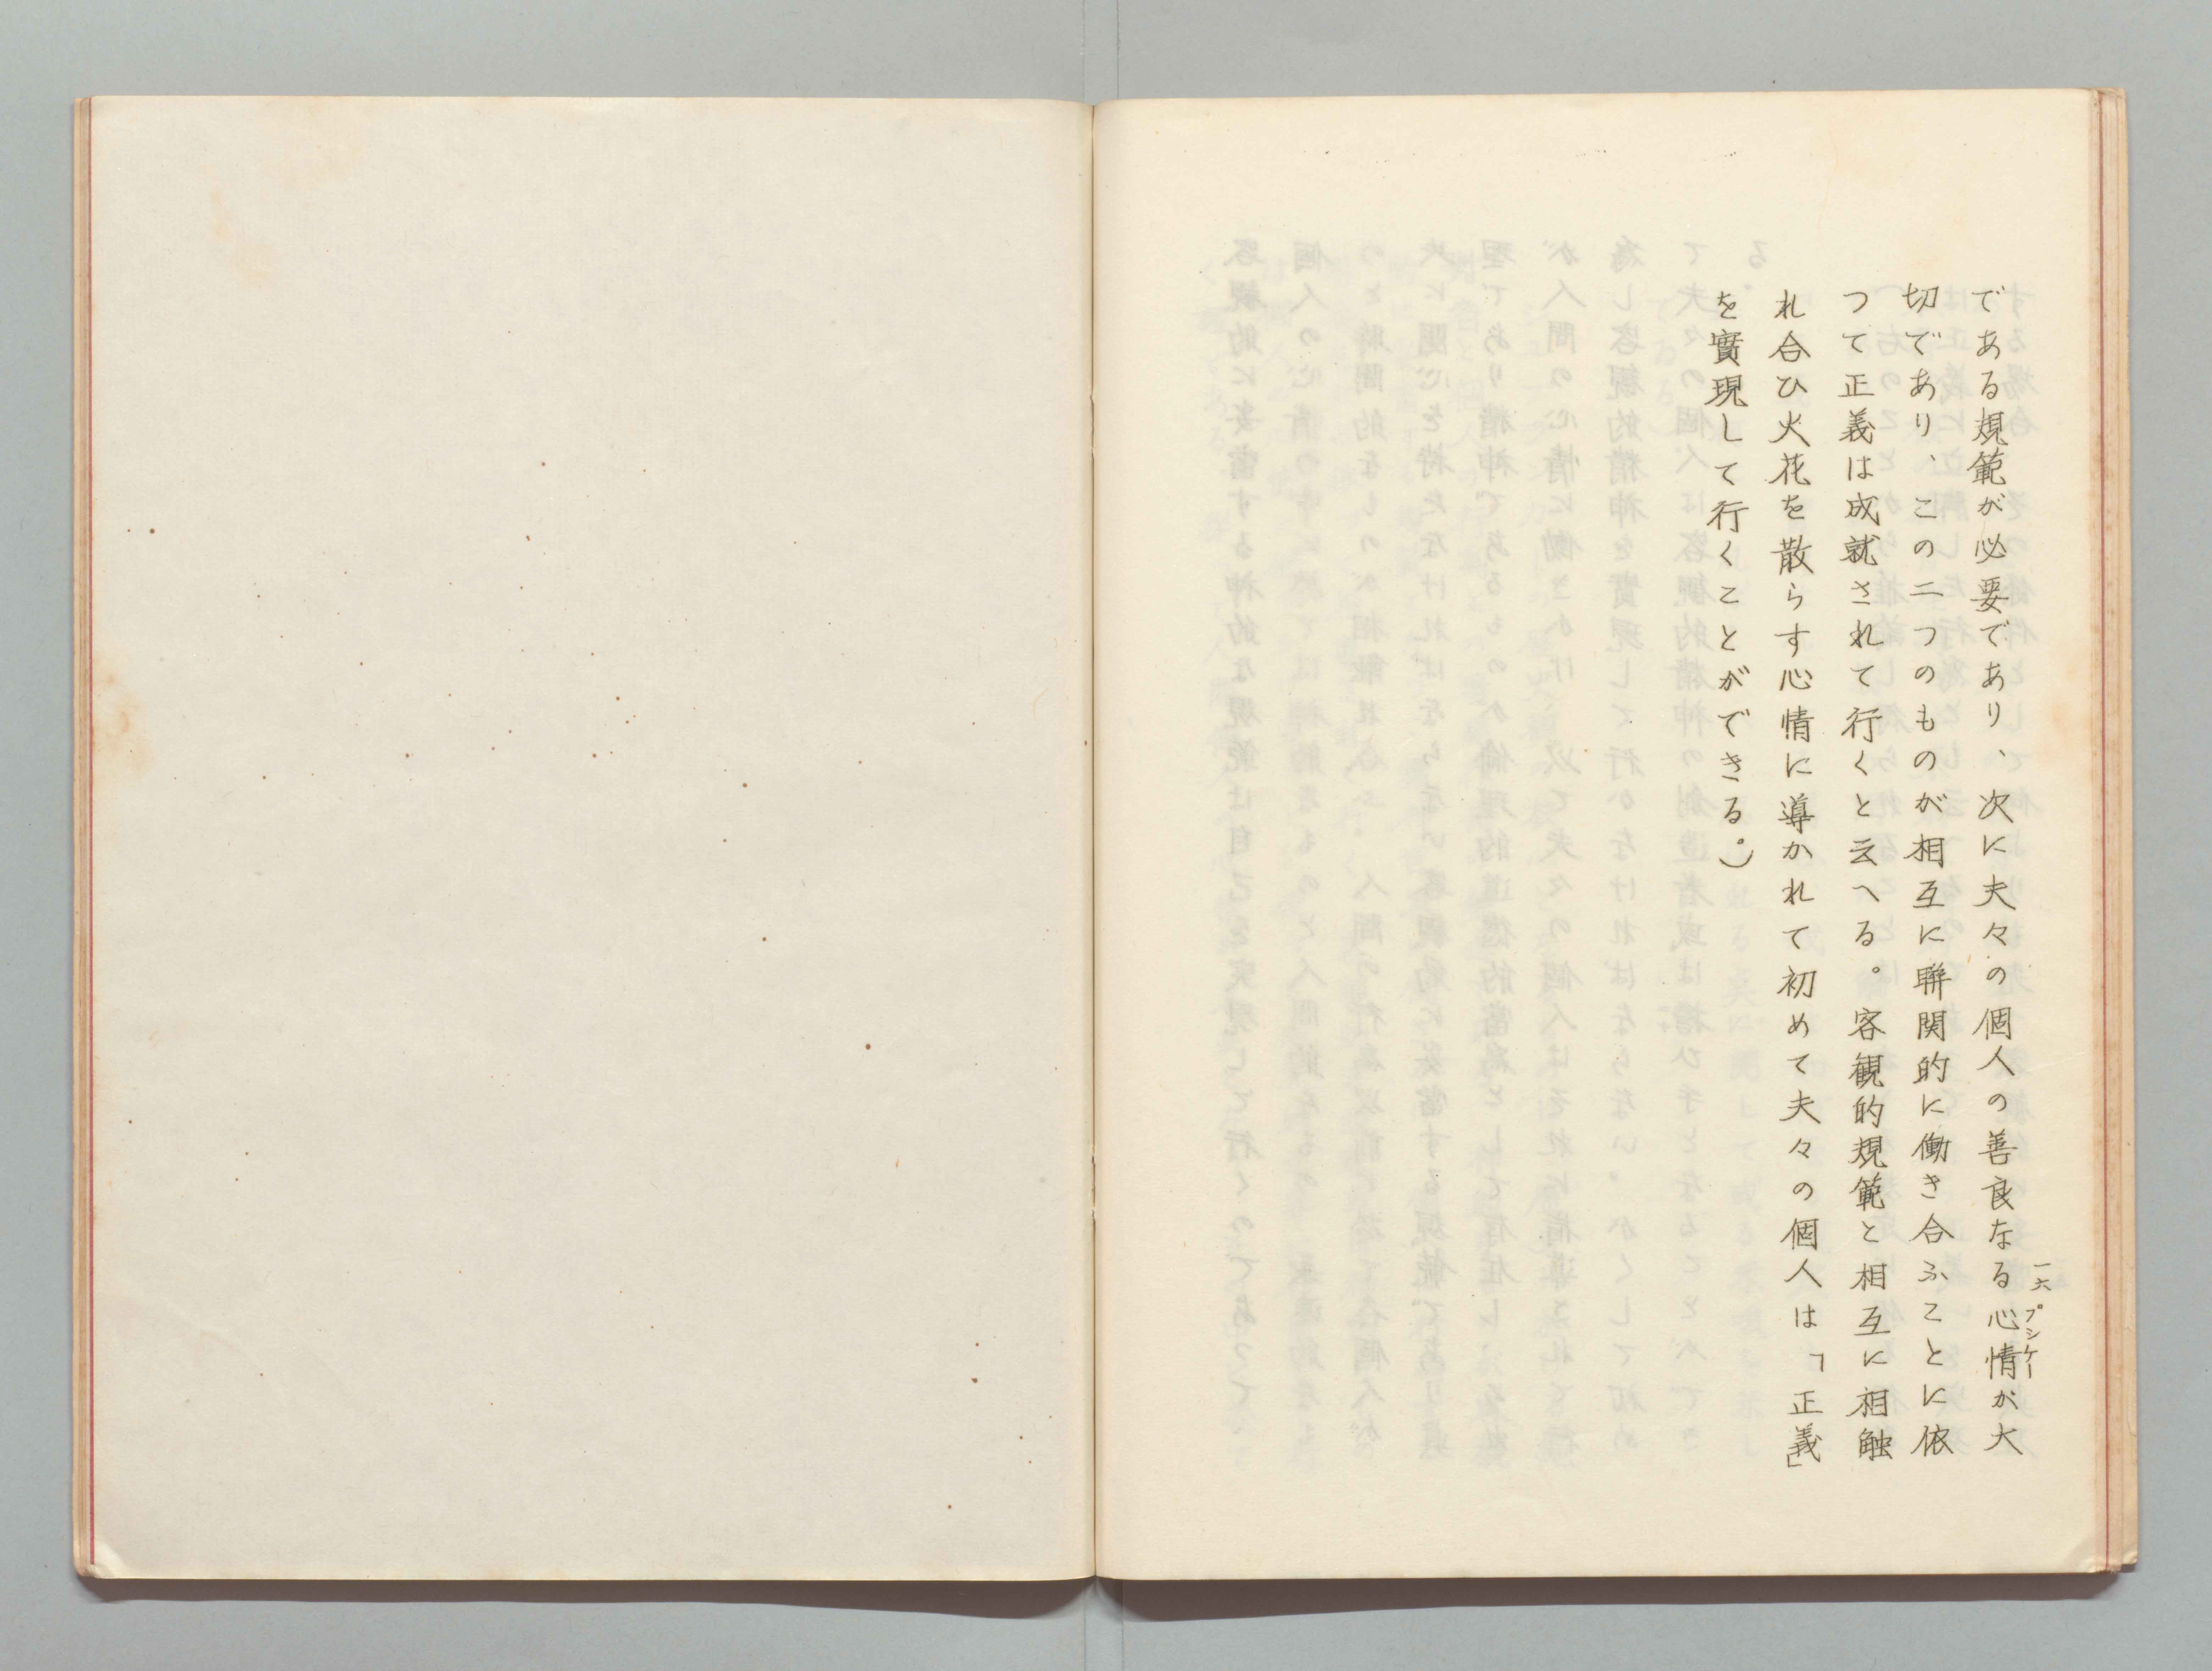 一六
である規範が必要であり、次に夫々の個人の善良なる心情が大
プシケー
切であり、この二つのものが相互に聯関的に働き合ふことに依
つて正義は成就されて行くと云へる。客観的規範と相互に相触
れ合ひ火花を散らす心情に導かれて初めて夫々の個人は「正義」
を實現して行くことができる。）